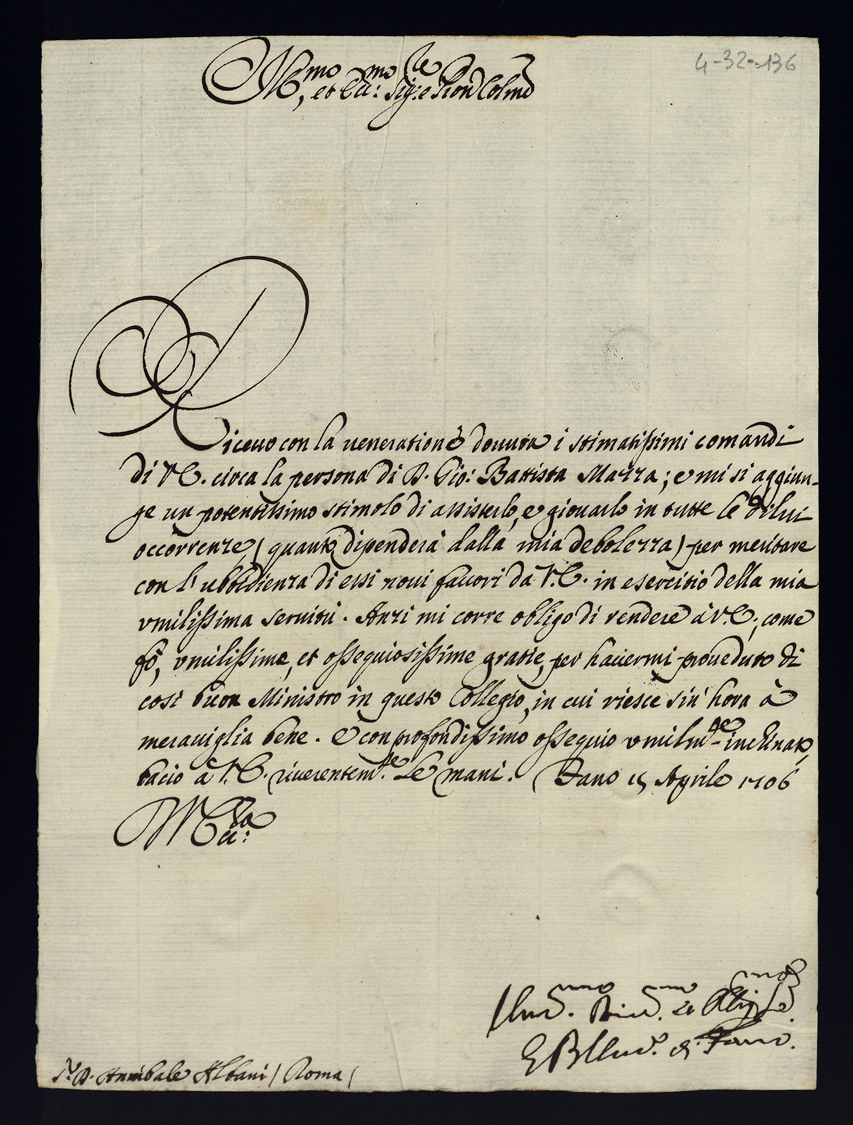 Ill.mo, et Ecc.mo Sig.re P.ron Col.mo
4-32-136
Riceuo con la ueneratione douuta i stimatissimi comandi
di V.E. circa la persona di D. Gio: Battista Mazza; e mi si aggiun-
ge un potentissimo stimolo di assisterlo, e giouarlo in tutte le di lui
occorrenze (quanto dipenderà dalla mia debolezza) per meritare
con l'ubbidienza di essi noui fauori da V.E. in esercitio della mia
vmilissima seruitù. Anzi mi corre obligo di rendere à V.E., come
fò, vmilissime, et ossequiosissime gratie, per hauermi proueduto di
così buon Ministro in questo Collegio, in cui riesce sin' hora à
merauiglia bene. E con profondissimo ossequio vmilm.te inclinato,
bacio à V.E. riuerentem.te le mani. Fano 15 Aprile 1706
V.E.
Vmil.mo Diu.mo et Oblig.mo Se.
di Fano.
S.r D. Annibale Albani / Roma /